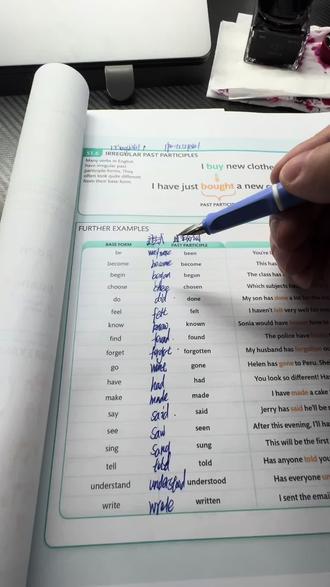 51.6 IRREGULAR PAST PARTICIPLES
Many verbs in English
have irregular past
participle forms. They
often look quite different
from their base form.
I buy new clothe
I have just bought a new c
PAST PARTICI
FURTHER EXAMPLES
过去式
BASE FORM PAST PARTICIPLE
be was/were been You're
become became become
begin began begun The class has
choose chose chosen Which subjects
do did done My son has done a
feel felt felt I haven't felt very well
know knew known Sonia would have
find found found The police have
forget forgot forgotten My husband has forgotten
go went gone Helen has gone to Peru. She
have had had You look so different! Ha
make made made I have made a cake
say said said Jerry has said he'll
see saw seen After this evening, I'll
sing sang sung This will be the first
tell told told Has anyone told you
understand understood understood Has everyone un
write wrote written I sent the email